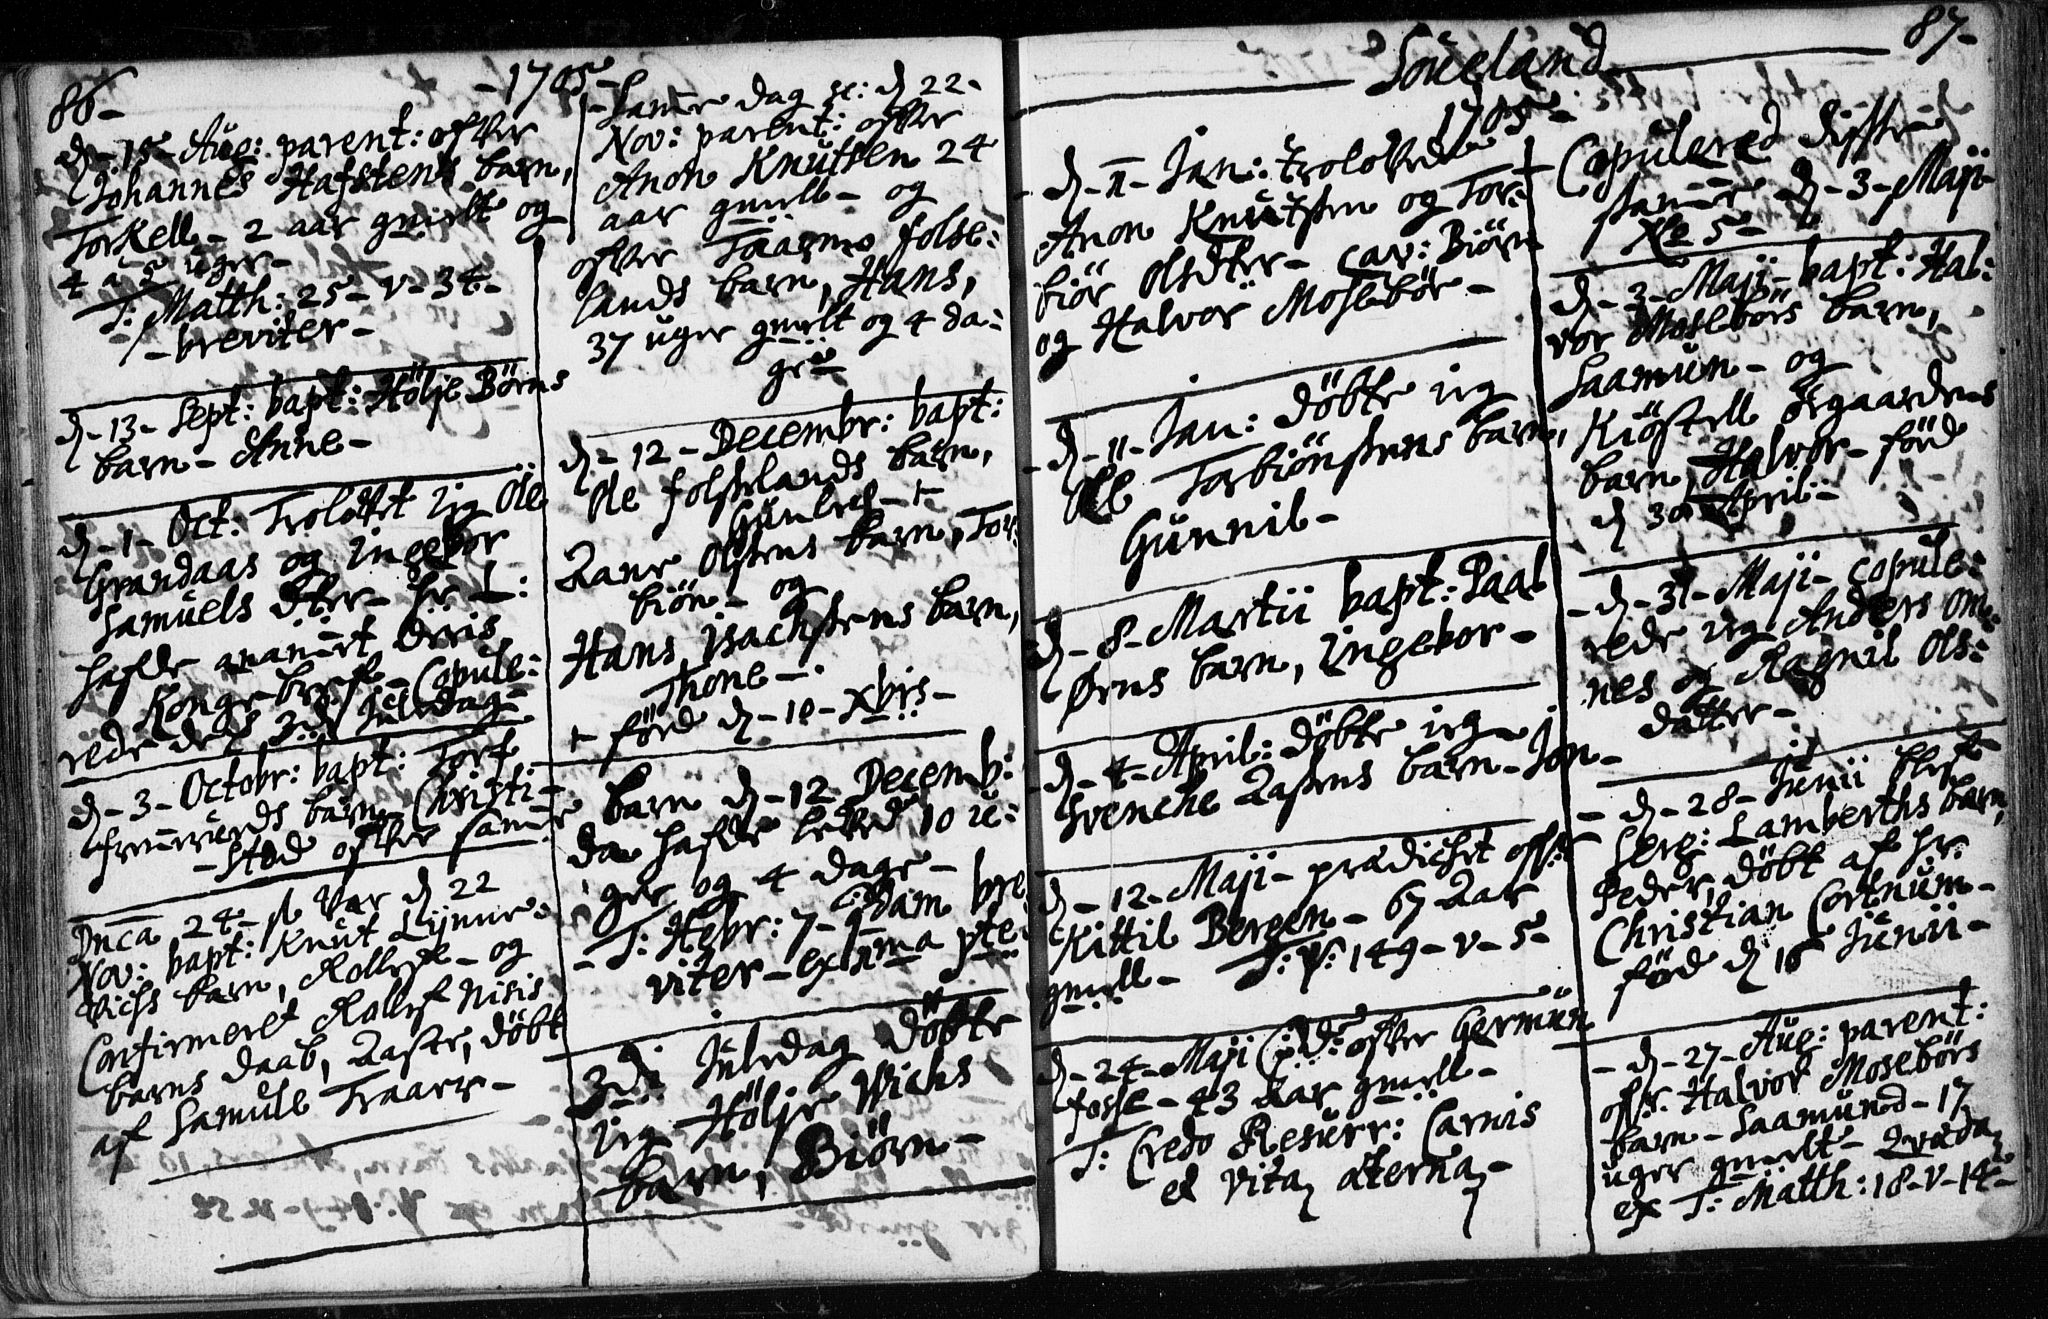 86-
-1705-
d-15-Aug: parent: offver
Johannes Hafstens barn,
Torkell- 2 aar gmelt og
4 a 5 uger-
T: Matth: 25- v- 34-
-breviter-
d-13- Sept: bapt: Hölje Börns
barn- Anne-
d-1- Oct: Trolofvet ieg Ole
Grandaas og Ingebor
Samuels dter- hr L:
hafde anam̄et deris
Konge-bref- Copule-
rede dem 3di Juledag-
d-3- Octobr: bapt: Torf
barn- Christi-
-Stod effter samme
Dn̄ca 24- var d 22
Nov: bapt: Knut Lynne-
vichs barn, Rollef- og
Confirmeret Rollef Nisis
barns daab, Aaste, döbt
af Samuel Traaer-
-Sam̄e dag sc: d 22-
Nov: parent: offver
Anon Knutsen 24
aar gmell- og
offver Taarmo folse-
lands barn, Hans,
37 uger gmelt og 4 da-
ge-
d- 12- Decembr: bapt:
Ole folselands barn,
Gunles- +
Aane Olsens barn, Tor-
biön- og
Hans Isachsens barn,
Thone-
+ föd d- 10- Xbris-
barn d- 12 Decemb:
da hafde leved 10 u-
ger og 4 dage-
-T: Hebr: 7- bre
viter- ex
3di Juledag döbte
ieg Hölje Vichs
barn, Biörn-
Söueland
87-
1705-
-d-1- Jan: trolofvede
Anon Knutsen og Tor-
biör Olsdter- cav: Biörn
og Halvor Mosebör-
-d-11-Jan: döbte ieg
Ole Torbiönsens barn,
Gunnil-
d-8-Martii bapt: Paal
Ørns barn, Ingebor-
d-4-April: döbte ieg
Svenche Aasens barn- Jon-
d-12-Maji- prædichet off:
Kittil Bergen- 67 Aar
gmell- T: ψ: 149- v- 5-
d-24-Maji offver Germun
fosse- 43 Aar gmell-
T: Credo Resurr: Carnis
et vitam æterna-
Copulered disse
sam̄e d-3-Maji-
d-3-Maji- bapt: Hal-
vor Mosebörs barn,
Saamun- og
Kiöstell Ørgaardens
barn, Halvor- föd
d 30 April-
-d-31-Maji- copule-
rede ieg Anders Om-
nes og Ragnil Ols-
datter-
-d-28-Junii blef
Serg: Lamberths barn,
Peder, döbt af Hr.
Christian Cortnum-
föd d 16 Junii-
-d-27-Aug: parent:
offr. Halvor Mosebörs
barn- Saamund- 17
uger gmelt- Qvædam
ex T: Matth: 18- v- 14-